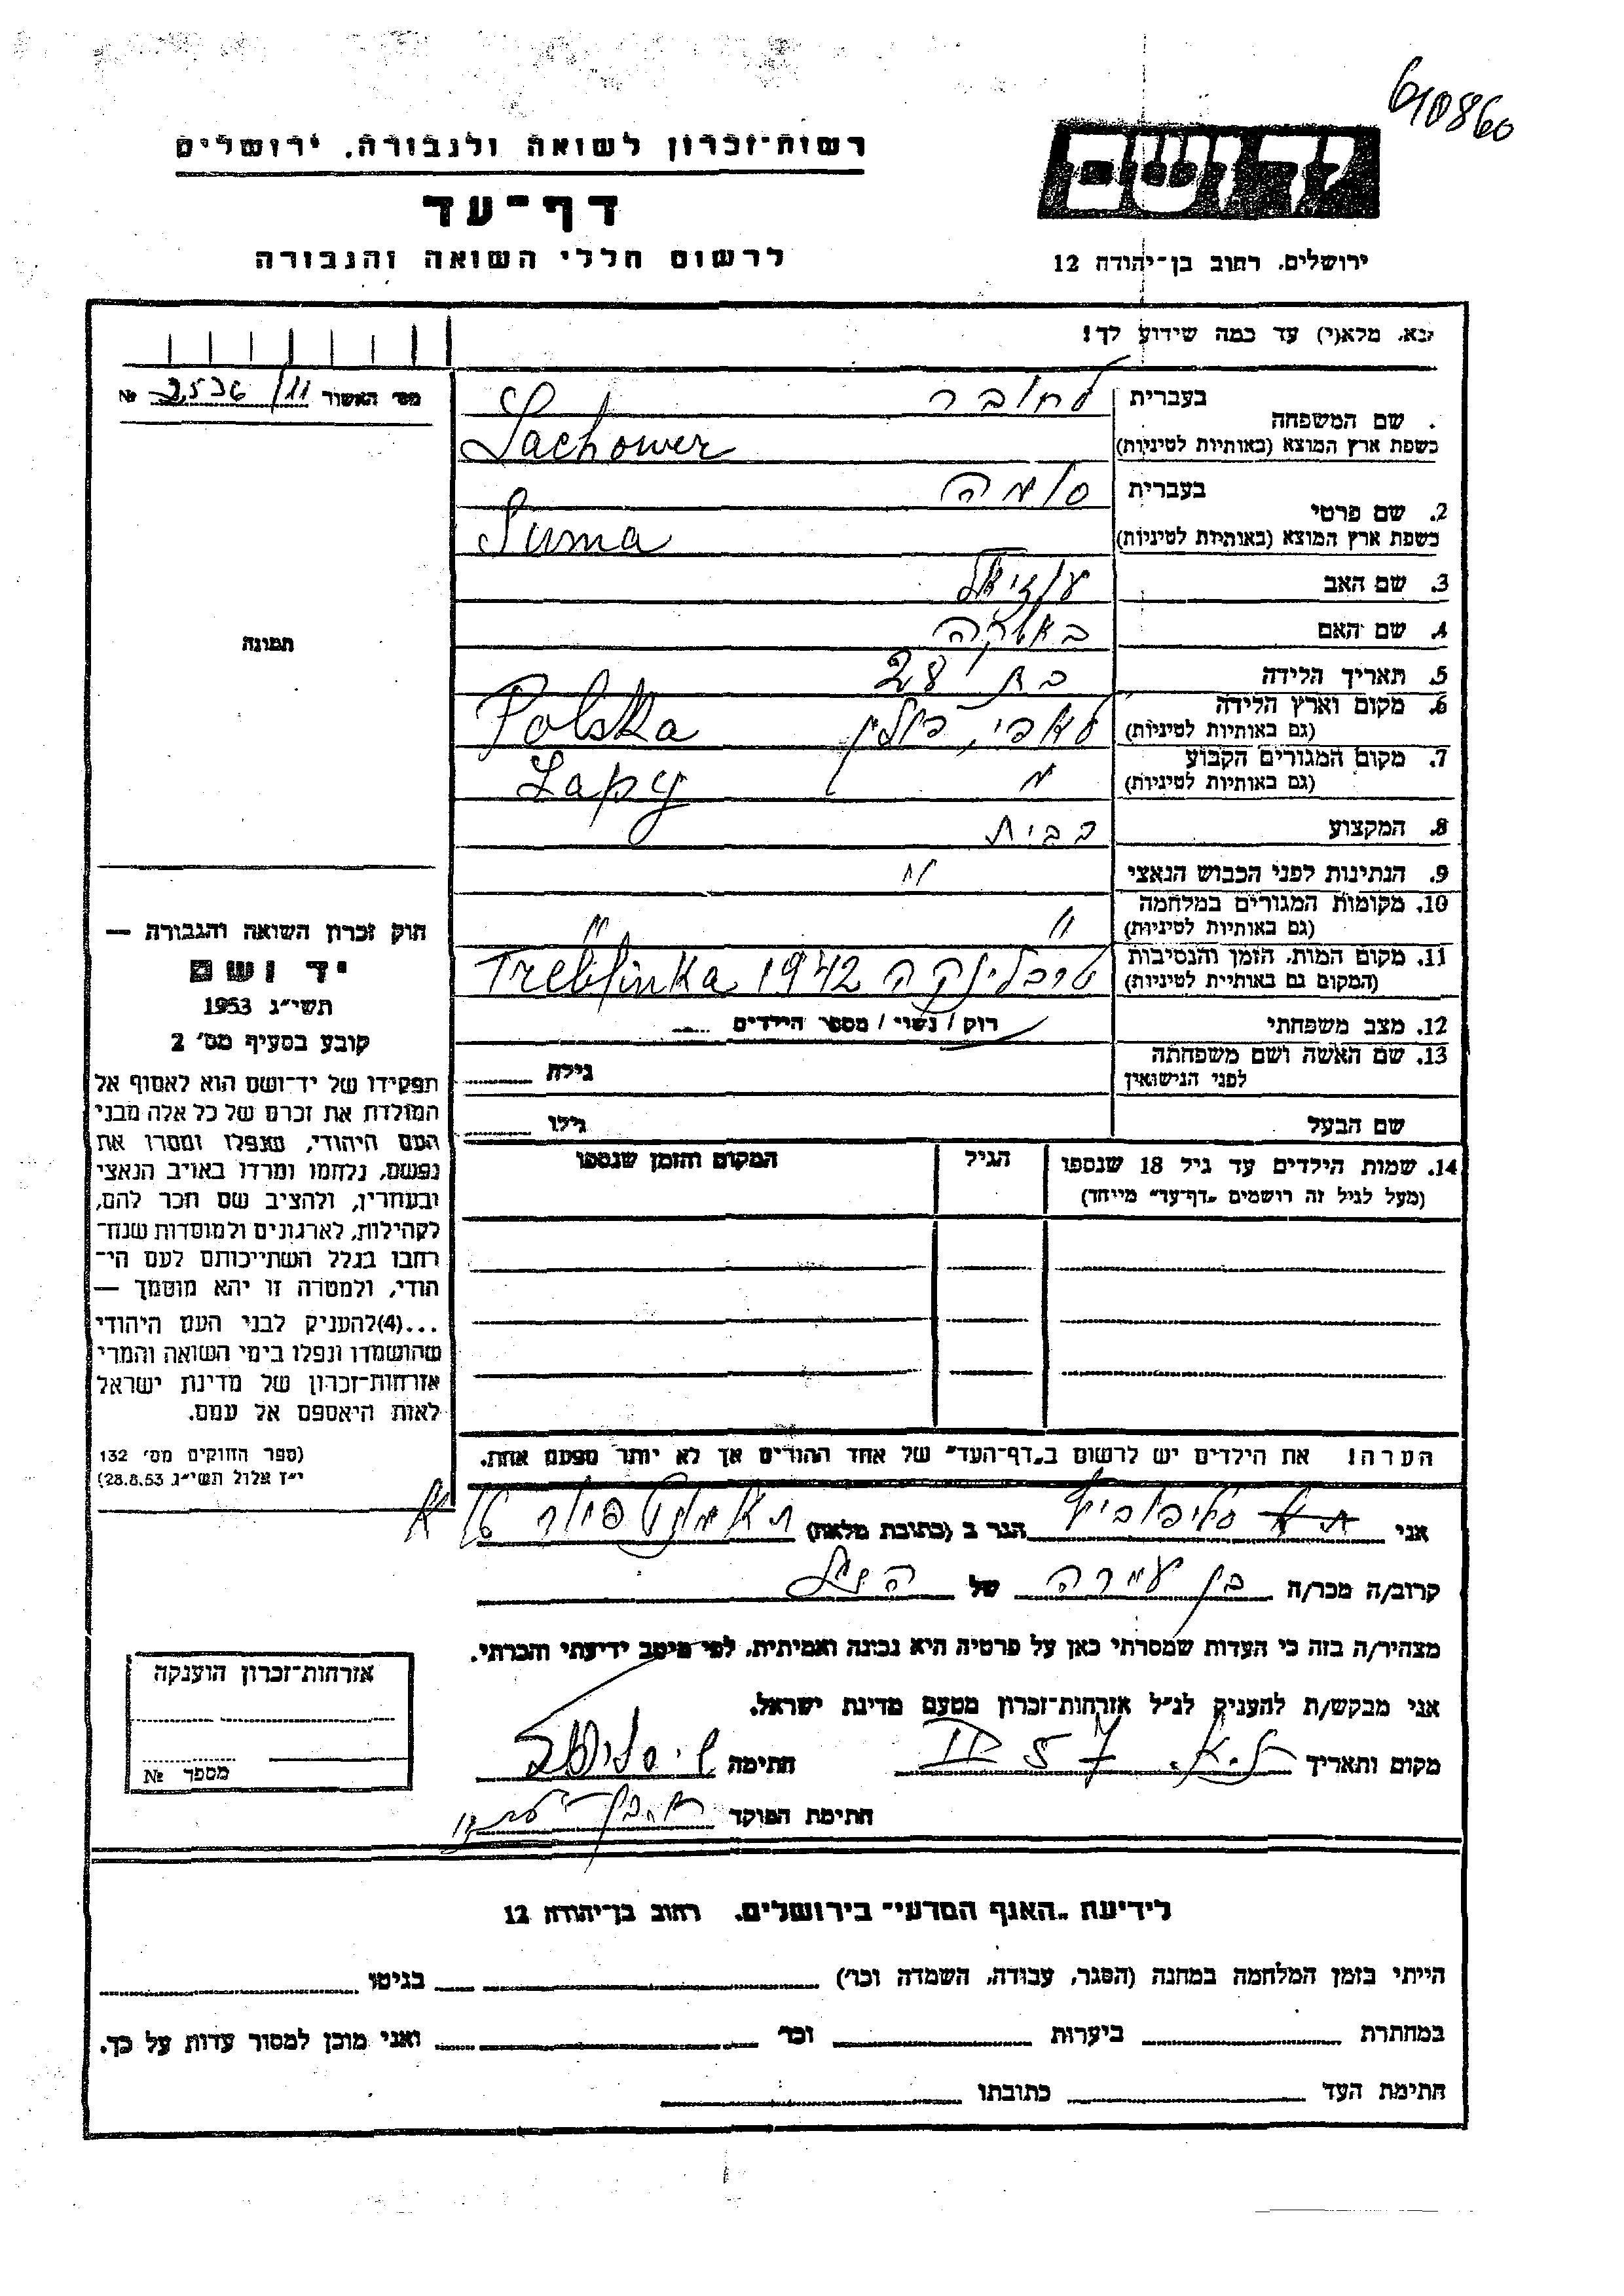 610860
רשות-זכרון לשואה ולגבורה, ירושלים
דף-עד
לרשום חללי השואה והגבורה
יד ושם
ירושלים, רחוב בן-יהודה 12
נא, מלא(י) עד כמה שידוע לך!
מס' האשור 11/ №
שם המשפחה בעברית לחובר
כשפת ארץ המוצא (באותיות לטיניות) Lachower
2. שם פרטי בעברית סומה
כשפת ארץ המוצא (באותיות לטיניות) Suma
3. שם האב עוזיאל
4. שם האם
5. תאריך הלידה בת 28
6. מקום וארץ הלידה (גם באותיות לטיניות) לאפי, פולין Polska
7. מקום המגורים הקבוע (גם באותיות לטיניות) " Łapy
8. המקצוע בבית
9. הנתינות לפני הכבוש הנאצי "
10. מקומות המגורים במלחמה (גם באותיות לטיניות) " "
11. מקום המות, הזמן והנסיבות (המקום גם באותיות לטיניות) טרבלינקה 1942 Treblinka
12. מצב משפחתי רוק / נשוי / מספר הילדים
13. שם האשה ושם משפחתה לפני הנישואין גילה
שם הבעל גילו
14. שמות הילדים עד גיל 18 שנספו הגיל המקום והזמן שנספו
(מעל לגיל זה רושמים "דף-עד" מייחד)
הערה! את הילדים יש לרשום ב"דף-העד" של אחד ההורים אך לא יותר מפעם אחת.
תמונה
חוק זכרון השואה והגבורה —
יד ושם
תשי"ג 1953
קובע בסעיף מס' 2
תפקידו של יד-ושם הוא לאסוף אל
המולדת את זכרם של כל אלה מבני
העם היהודי, שנפלו ומסרו את
נפשם, נלחמו ומרדו באויב הנאצי
ובעוזריו, ולהציב שם וזכר להם,
לקהילות, לארגונים ולמוסדות שנח-
רבו בגלל השתייכותם לעם הי-
הודי, ולמטרה זו יהא מוסמך —
...(4)להעניק לבני העם היהודי
שהושמדו ונפלו בימי השואה והמרי
אזרחות-זכרון של מדינת ישראל
לאות היאספם אל עמם.
(ספר החוקים מס' 132
י"ז אלול תשי"ג 28.8.53)
אני הגר ב (כתובת מלאה)
קרוב/ה מכר/ה בן עיירה של הנ"ל
מצהיר/ה בזה כי העדות שמסרתי כאן על פרטיה היא נכונה ואמיתית, לפי מיטב ידיעתי והכרתי.
אני מבקש/ת להעניק לנ"ל אזרחות-זכרון מטעם מדינת ישראל.
מקום ותאריך 57 חתימה
חתימת הפוקד
אזרחות-זכרון הוענקה
מספר №
לידיעת "האגף המדעי" בירושלים, רחוב בן-יהודה 12
הייתי בזמן המלחמה במחנה (הסגר, עבודה, השמדה וכו') בגיטו
במחתרת ביערות וכו' ואני מוכן למסור עדות על כך.
חתימת העד כתובתו